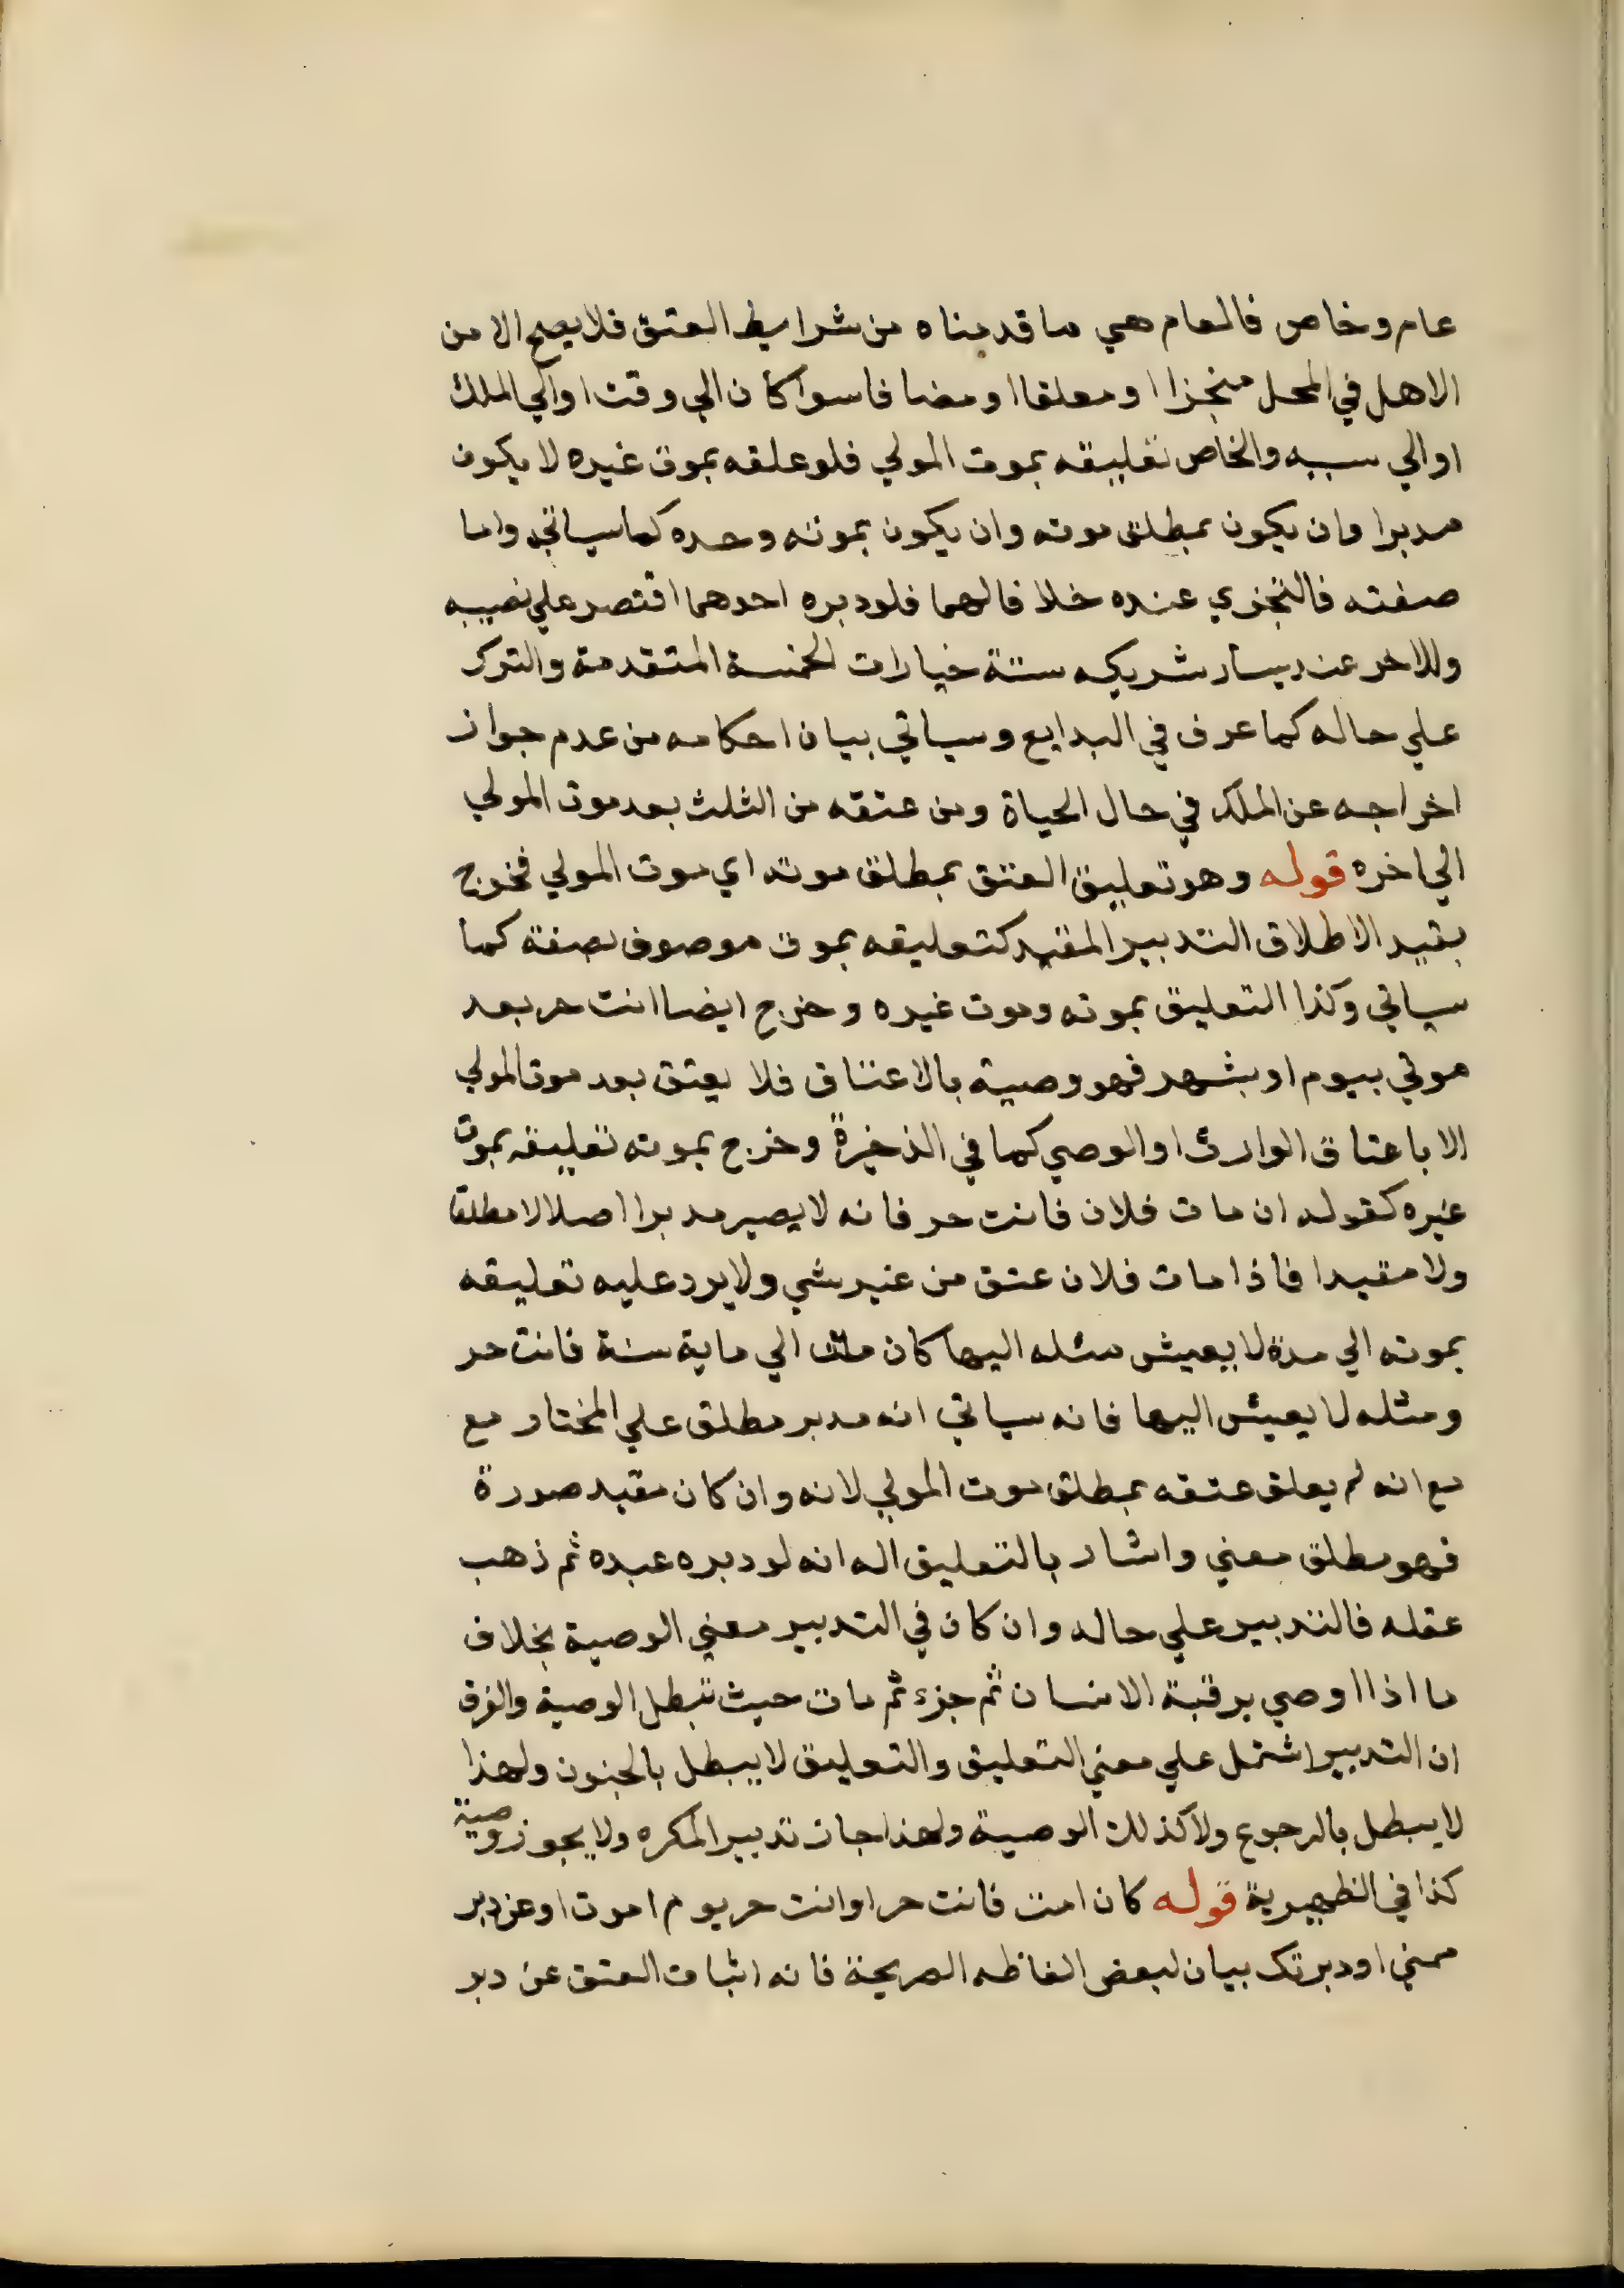 عام وخاص فالعام هي ما قدمناه من شرايط العتق فلا يصح الا من
الاهل في المحل منجزا او معلقا او مضافا سوا كان الي وقت او الي الملك
او الي سببه والخاص تعليقه بموت المولي فلو علقه بموت غيره لا يكون
مدبرا وان يكون بمطلق موته وان يكون بموته وحده كما سياتي واما
صفته فالتجزي عنده خلافا لهما فلو دبره احدهما اقتصر علي نصيبه
وللاخر عند يسار شريكه ستة خيارات الخمسة المتقدمة والترك
علي حاله كما عرف في البدايع وسياتي بيان احكامه من عدم جواز
اخراجه عن الملك في حال الحياة ومن عتقه من الثلث بعد موت المولي
الي اخره قوله وهو تعليق العتق بمطلق موته اي موت المولي فخرج
بقيد الاطلاق التدبير المقيد كتعليقه بموت موصوف بصفة كما
سياتي وكذا التعليق بموته وموت غيره وخرج ايضا انت حر بعد
موتي بيوم او بشهر فهو وصية بالاعتاق فلا يعتق بعد موت المولي
الا باعتاق الوارث او الوصي كما في الذخيرة وخرج بموته تعليقه بموت
غيره كقوله ان مات فلان فانت حر فانه لا يصير مدبرا اصلا لا مطلقا
ولا مقيدا فاذا مات فلان عتق من غير شي ولا يرد عليه تعليقه
بموته الي مدة لا يعيش مثله اليها كان مت الي ماية سنة فانت حر
ومثله لا يعيش اليها فانه سياتي انه مدبر مطلق علي المختار مع
مع انه لم يعلق عتقه بمطلق موت المولي لانه وان كان مقيد صورة
فهو مطلق معني واشار بالتعليق اله انه لو دبره عبده ثم ذهب
عقله فالتدبير علي حاله وان كان في التدبير معني الوصية بخلاف
ما اذا اوصي برقبة الانسان ثم جزء ثم مات حيث تبطل الوصية والفرق
ان التدبير اشتمل علي معني التعليق والتعليق لا يبطل بالجنون ولهذا
لا يبطل بالرجوع ولا كذلك الوصية ولهذا جاز تدبير المكره ولا يجوز وصية
كذا في الظهيرية قوله كان امت فانت حر او انت حر يوم اموت او عن دبر
مني او دبرتك بيان لبعض الفاظه الصريحة فانه اثبات العتق عن دبر